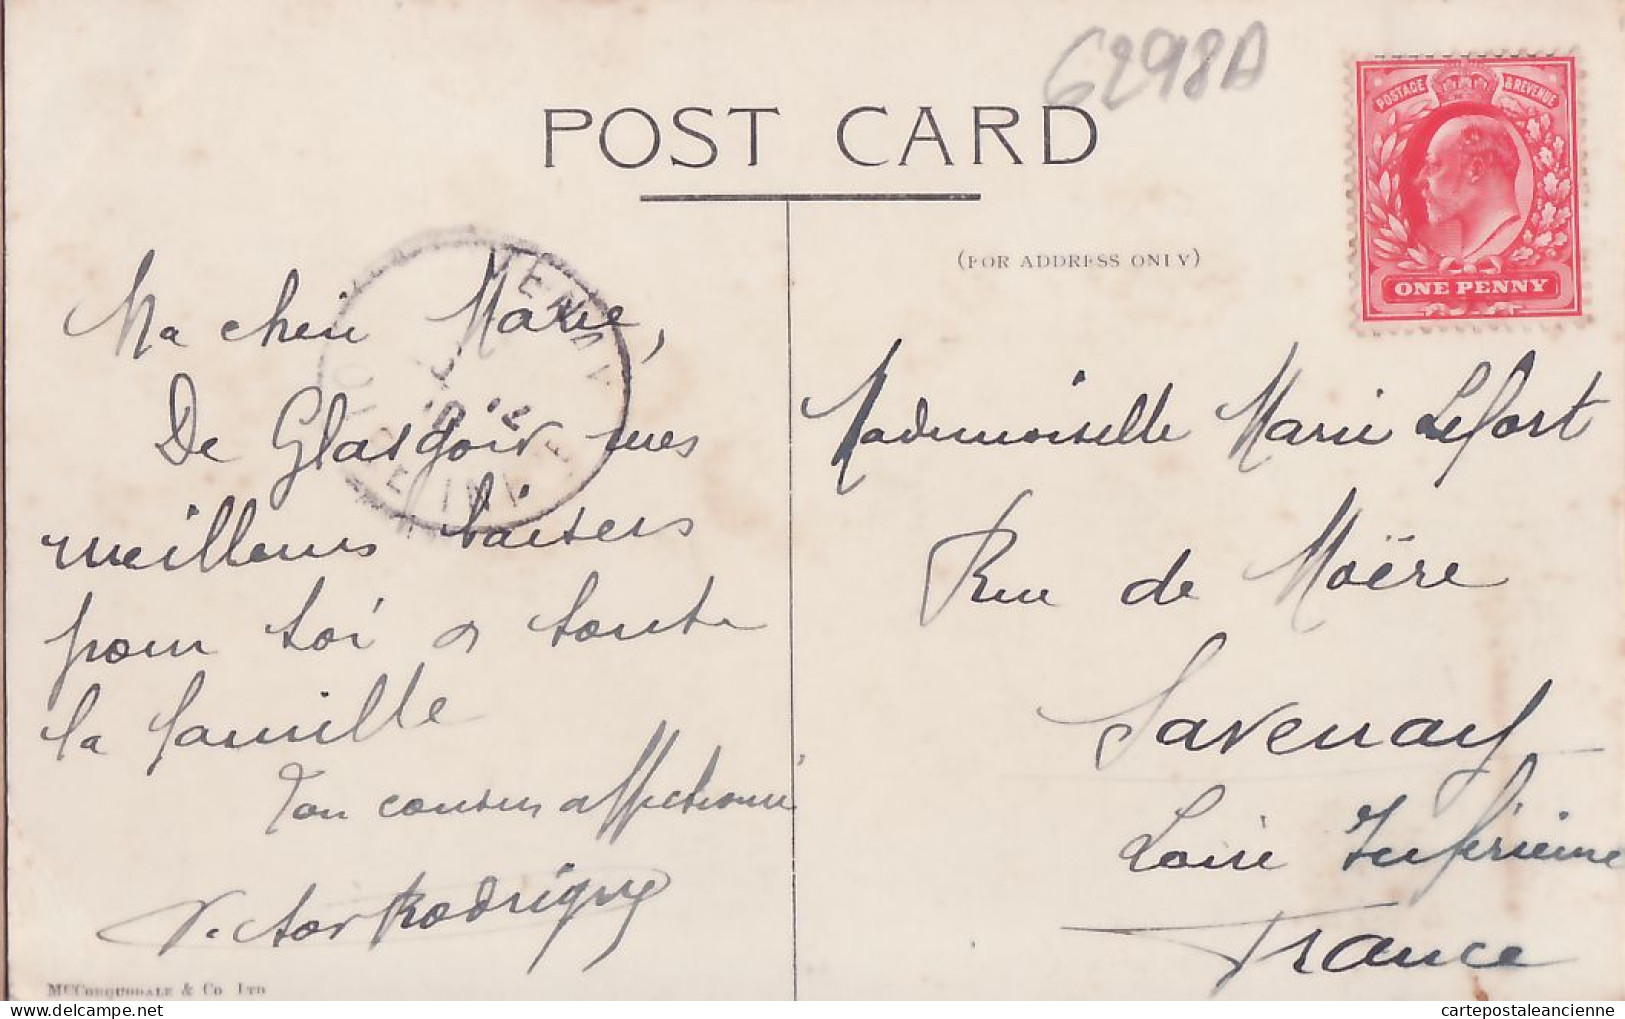 6298A
POST CARD
POSTAGE & REVENUE
ONE PENNY
(FOR ADDRESS ONLY)
Ma chère Marie,
De Glasgow mes
meilleurs baisers
pour toi et toute
la famille
Ton cousin affectionné
Victor Rodrigue
Mademoiselle Marie Lefort
Rue de Moëre
Savenay
Loire Inférieure
France
McCorquodale & Co Ltd
cartepostaleancienne